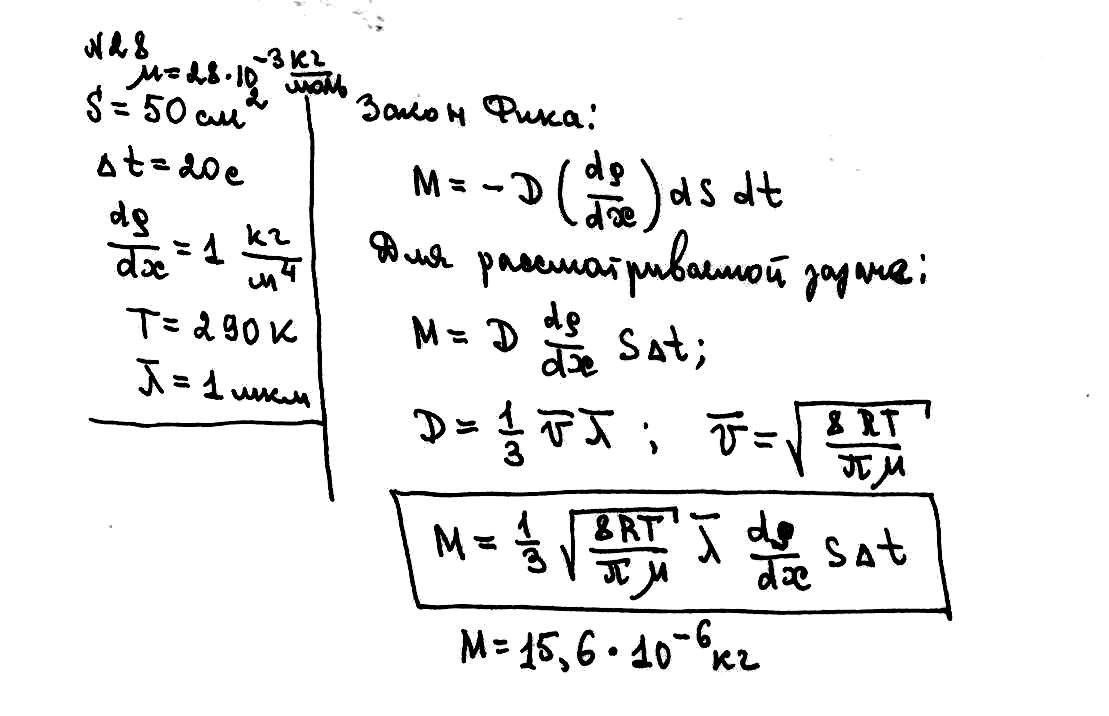 N28
μ = 28·10⁻³ кг/моль
S = 50 см²
Δt = 20 с
dρ/dx = 1 кг/м⁴
T = 290 К
λ̄ = 1 мкм
Закон Фика:
M = -D (dρ/dx) dS dt
Для рассматриваемой задачи:
M = D dρ/dx SΔt;
D = 1/3 v̄ λ̄ ; v̄ = √(8RT/πμ)
M = 1/3 √(8RT/πμ) λ̄ dρ/dx SΔt
M = 15,6·10⁻⁶ кг